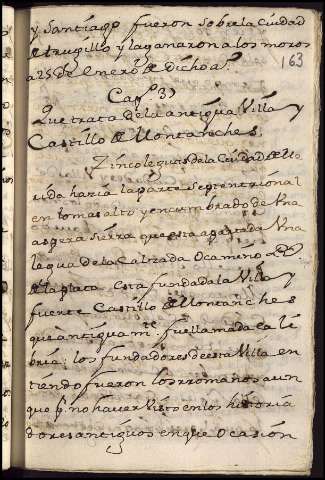 y Santiago fueron sobre la Ciudad
de trugillo y la ganaron a los moros
a 25 de Enero de dicho a.º
163
Cap.º 3º
Que trata de la antigua Villa y
Castillo de Montanches.
Zinco leguas de la Ciudad de Me
rida hazia la parte septentrional
en lo mas alto y encumbrado de Vna
aspera sierra que esta apartada Vna
legua de la Calzada o camino Rl
de la plata esta fundada la Villa y
fuerte Castillo de Montanches
que antiguam.te fue llamada ca le
bria; los fundadores de esta Villa en
tiendo fueron los rromanos aun
que p.r no haver Visto en los historia
dores antiguos en que ocasion